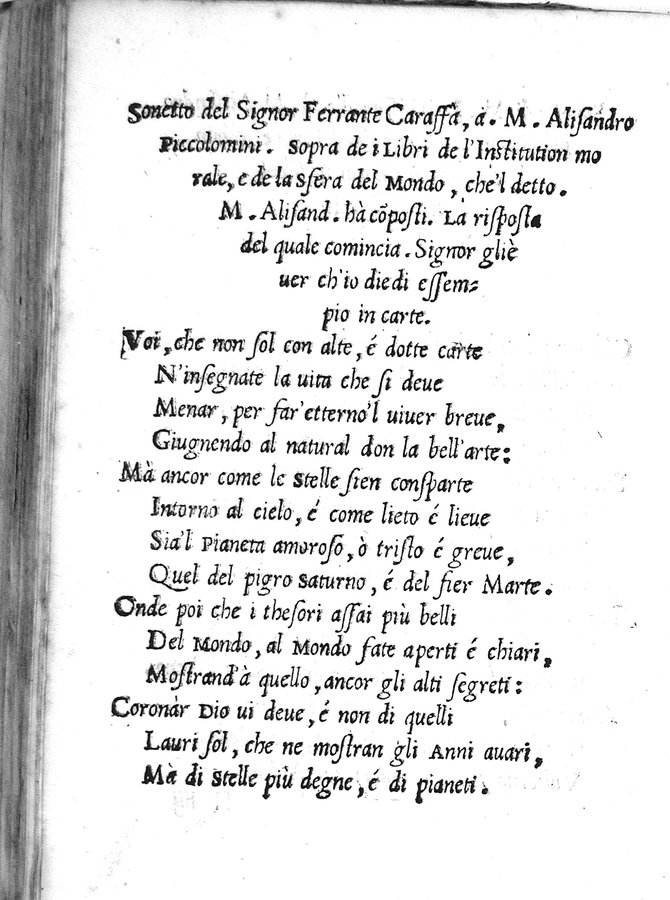 Sonetto del Signor Ferrante Caraffa, à. M. Aliſandro
Piccolomini. Sopra de i Libri de l'Inſtitution mo
rale, e de la Sfera del Mondo, che'l detto.
M. Aliſand. hà cõpoſti. La riſpoſta
del quale comincia. Signor gliè
uer ch'io diedi eſſem-
pio in carte.
Voi, che non ſol con alte, é dotte carte
N'inſegnate la uita che ſi deue
Menar, per far'etterno'l uiuer breue,
Giugnendo al natural don la bell'arte:
Mà ancor come le Stelle ſien conſparte
Intorno al cielo, é come lieto é lieue
Sia'l Pianeta amoroſo, ò triſto é greue,
Quel del pigro Saturno, é del fier Marte.
Onde poi che i theſori aſſai più belli
Del Mondo, al Mondo fate aperti é chiari,
Moſtrand'à quello, ancor gli alti ſegreti:
Coronàr Dio ui deue, é non di quelli
Lauri ſol, che ne moſtran gli Anni auari,
Mà di Stelle più degne, é di pianeti.